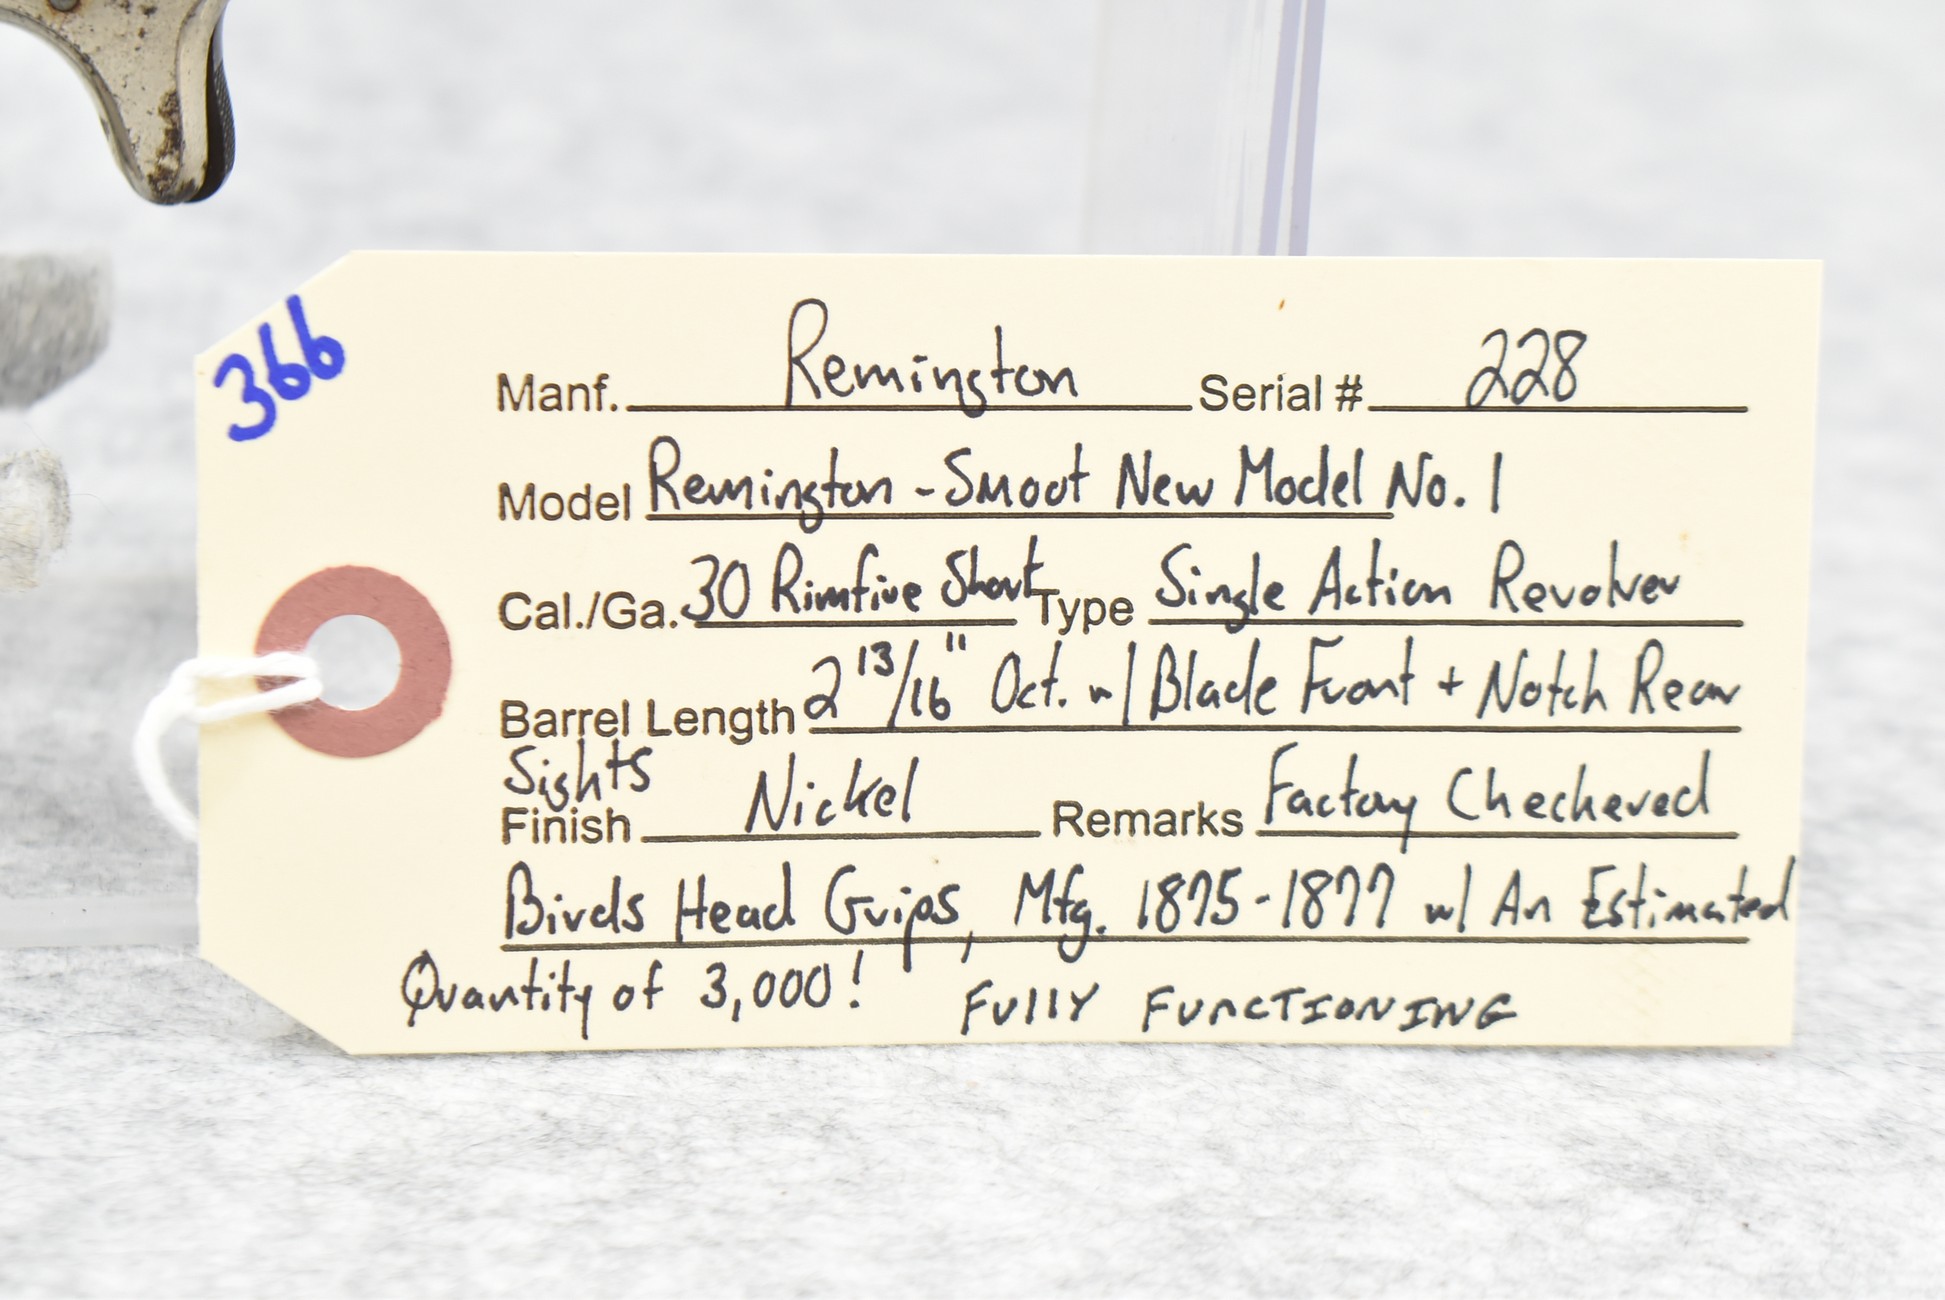 366
Manf. Remington Serial # 228
Model Remington-Smoot New Model No. 1
Cal./Ga. 30 Rimfire Short Type Single Action Revolver
Barrel Length 2 13/16" Oct. w/ Blade Front + Notch Rear
Sights
Finish Nickel Remarks Factory Checkered
Birds Head Grips, Mfg. 1875-1877 w/ An Estimated
Quantity of 3,000! FUllY FUNCTIONING